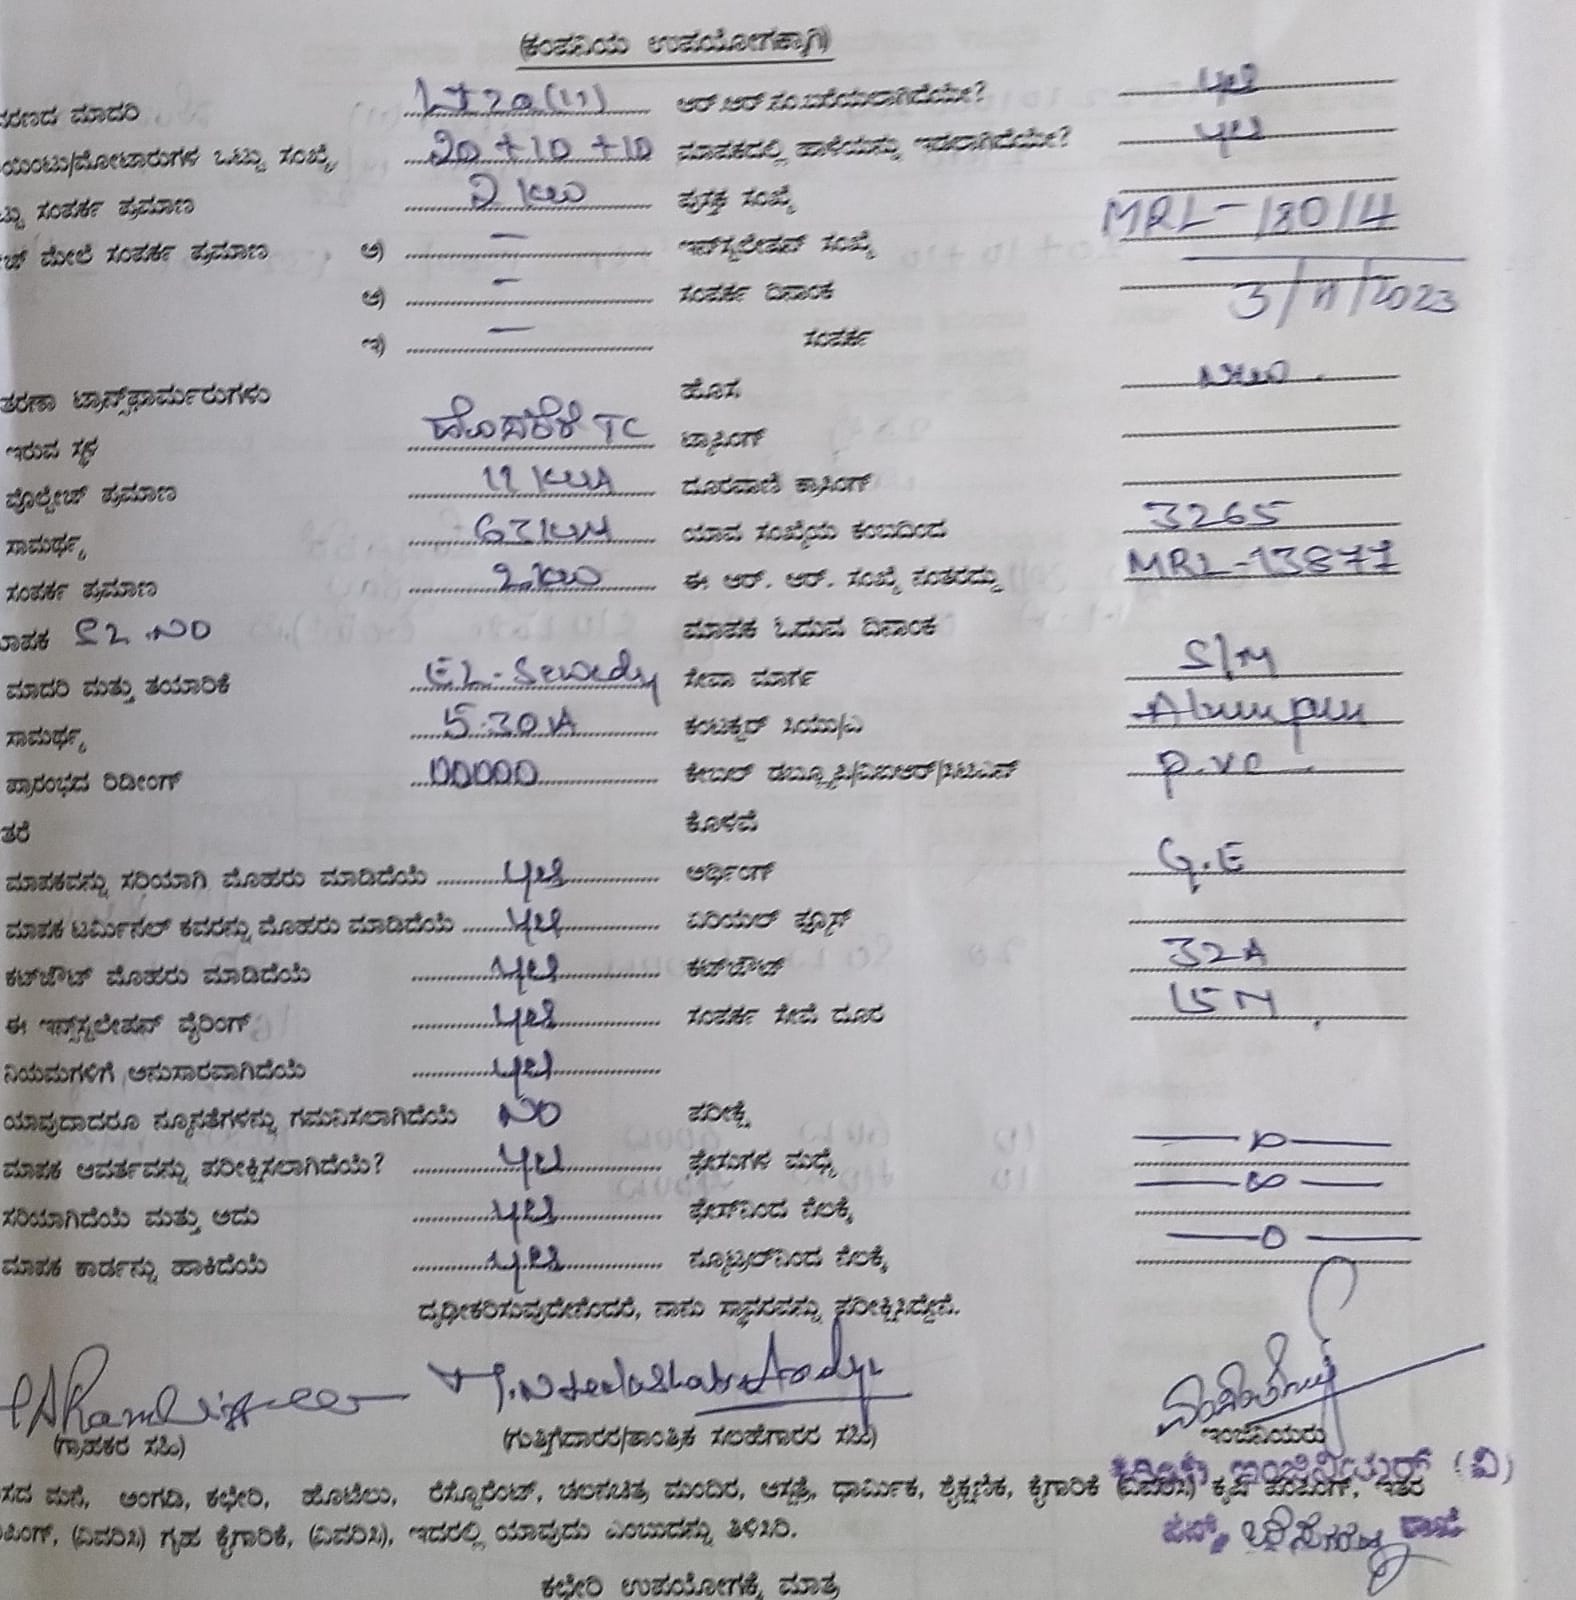 (ಕಂಪನಿಯ ಉಪಯೋಗಕ್ಕಾಗಿ)
ಮಾದರಿ LT2a(ii) ಆರ್.ಆರ್.ಸಂ.ಬರೆಯಲಾಗಿದೆಯೇ? yes
ಒಟ್ಟು ಸಂಖ್ಯೆ 20+10+10 ಮಾಪಕದಲ್ಲಿ ಹಾಳೆಯನ್ನು ಇಡಲಾಗಿದೆಯೇ? yes
ಸಂಪರ್ಕ ಪ್ರಮಾಣ 2 KW ಪುಸ್ತಕ ಸಂಖ್ಯೆ
ಮೇಲೆ ಸಂಪರ್ಕ ಪ್ರಮಾಣ ಅ) – ಇನ್‌ಸ್ಟಲೇಷನ್ ಸಂಖ್ಯೆ MRL-18014
ಆ) – ಸಂಪರ್ಕ ದಿನಾಂಕ 3/11/2023
ಇ) – ಸಂಪರ್ಕ
ಟ್ರಾನ್ಸ್‌ಫಾರ್ಮರುಗಳು ಹೊಸ New
ಇರುವ ಸ್ಥಳ TC ಟ್ಯಾಪಿಂಗ್
ವೋಲ್ಟೇಜ್ ಪ್ರಮಾಣ 11 ದೂರವಾಣಿ ಕ್ರಾಸಿಂಗ್
ಸಾಮರ್ಥ್ಯ 63 ಯಾವ ಸಂಖ್ಯೆಯ ಕಂಬದಿಂದ 3265
ಸಂಪರ್ಕ ಪ್ರಮಾಣ 2 KW ಈ ಆರ್. ಆರ್. ಸಂಖ್ಯೆ ನಂತರದ್ದು MRL-13877
SL.NO ಮಾಪಕ ಓದುವ ದಿನಾಂಕ
ಮಾದರಿ ಮತ್ತು ತಯಾರಿಕೆ EL-Sewedy ಸೇವಾ ಮಾರ್ಗ S/M
ಸಾಮರ್ಥ್ಯ 5-30A ಕಂಟಕ್ಟರ್ ಸಿಯು/ಎ
ಪ್ರಾರಂಭದ ರಿಡೀಂಗ್ 00000 ಕೇಬಲ್ P.VC
ತರೆ ಕೊಳವೆ
ಮಾಪಕವನ್ನು ಸರಿಯಾಗಿ ಮೊಹರು ಮಾಡಿದೆಯೆ yes ಅರ್ಥಿಂಗ್ G.E
ಮಾಪಕ ಟರ್ಮಿನಲ್ ಕವರನ್ನು ಮೊಹರು ಮಾಡಿದೆಯೆ yes ಏರಿಯಲ್ ಫ್ಯೂಸ್
ಕಟ್‌ಔಟ್ ಮೊಹರು ಮಾಡಿದೆಯೆ yes ಕಟ್‌ಔಟ್ 32A
ಈ ಇನ್‌ಸ್ಟಲೇಷನ್ ವೈರಿಂಗ್ yes ಸಂಪರ್ಕ ಸೇವೆ ದೂರ 15M
ನಿಯಮಗಳಿಗೆ ಅನುಸಾರವಾಗಿದೆಯೆ yes
ಯಾವುದಾದರೂ ನ್ಯೂನತೆಗಳನ್ನು ಗಮನಿಸಲಾಗಿದೆಯೆ NO ಪರೀಕ್ಷೆ
ಮಾಪಕ ಆವರ್ತವನ್ನು ಪರೀಕ್ಷಿಸಲಾಗಿದೆಯೆ? yes ಫೇಸುಗಳ ಮಧ್ಯೆ
ಸರಿಯಾಗಿದೆಯೆ ಮತ್ತು ಅದು yes ಫೇಸ್‌ನಿಂದ ನೆಲಕ್ಕೆ
ಮಾಪಕ ಕಾರ್ಡನ್ನು ಹಾಕಿದೆಯೆ yes ನ್ಯೂಟ್ರಲ್‌ನಿಂದ ನೆಲಕ್ಕೆ
ದೃಢೀಕರಿಸುವುದೇನೆಂದರೆ, ನಾನು ಸ್ಥಾವರವನ್ನು ಪರೀಕ್ಷಿಸಿದ್ದೇನೆ.
(ಗ್ರಾಹಕರ ಸಹಿ) (ಗುತ್ತಿಗೆದಾರರ/ತಾಂತ್ರಿಕ ಸಲಹೆಗಾರರ ಸಹಿ) ಇಂಜಿನಿಯರು
ಇಂಜಿನಿಯರ್ (ವಿ)
ಮನೆ, ಅಂಗಡಿ, ಕಛೇರಿ, ಹೊಟೆಲು, ರೆಸ್ಟೋರೆಂಟ್, ಚಲನಚಿತ್ರ ಮಂದಿರ, ಆಸ್ಪತ್ರೆ, ಧಾರ್ಮಿಕ, ಶೈಕ್ಷಣಿಕ, ಕೈಗಾರಿಕೆ (ವಿವರಿಸಿ) ಕೃಷಿ ಪಂಪಿಂಗ್, ಇತರ
(ವಿವರಿಸಿ) ಗೃಹ ಕೈಗಾರಿಕೆ, (ವಿವರಿಸಿ), ಇದರಲ್ಲಿ ಯಾವುದು ಎಂಬುದನ್ನು ತಿಳಿಸಿರಿ.
ಕಛೇರಿ ಉಪಯೋಗಕ್ಕೆ ಮಾತ್ರ